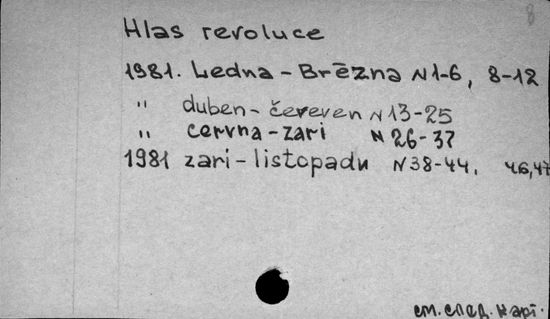 8
Hlas revoluce
1981. Ledna - Brēzna N 1-6, 8-12
" duben - čereven N 13-25
" cervna - zari N 26-37
1981 zari - listopadu N 38-44. 46,47
см. след. карт.